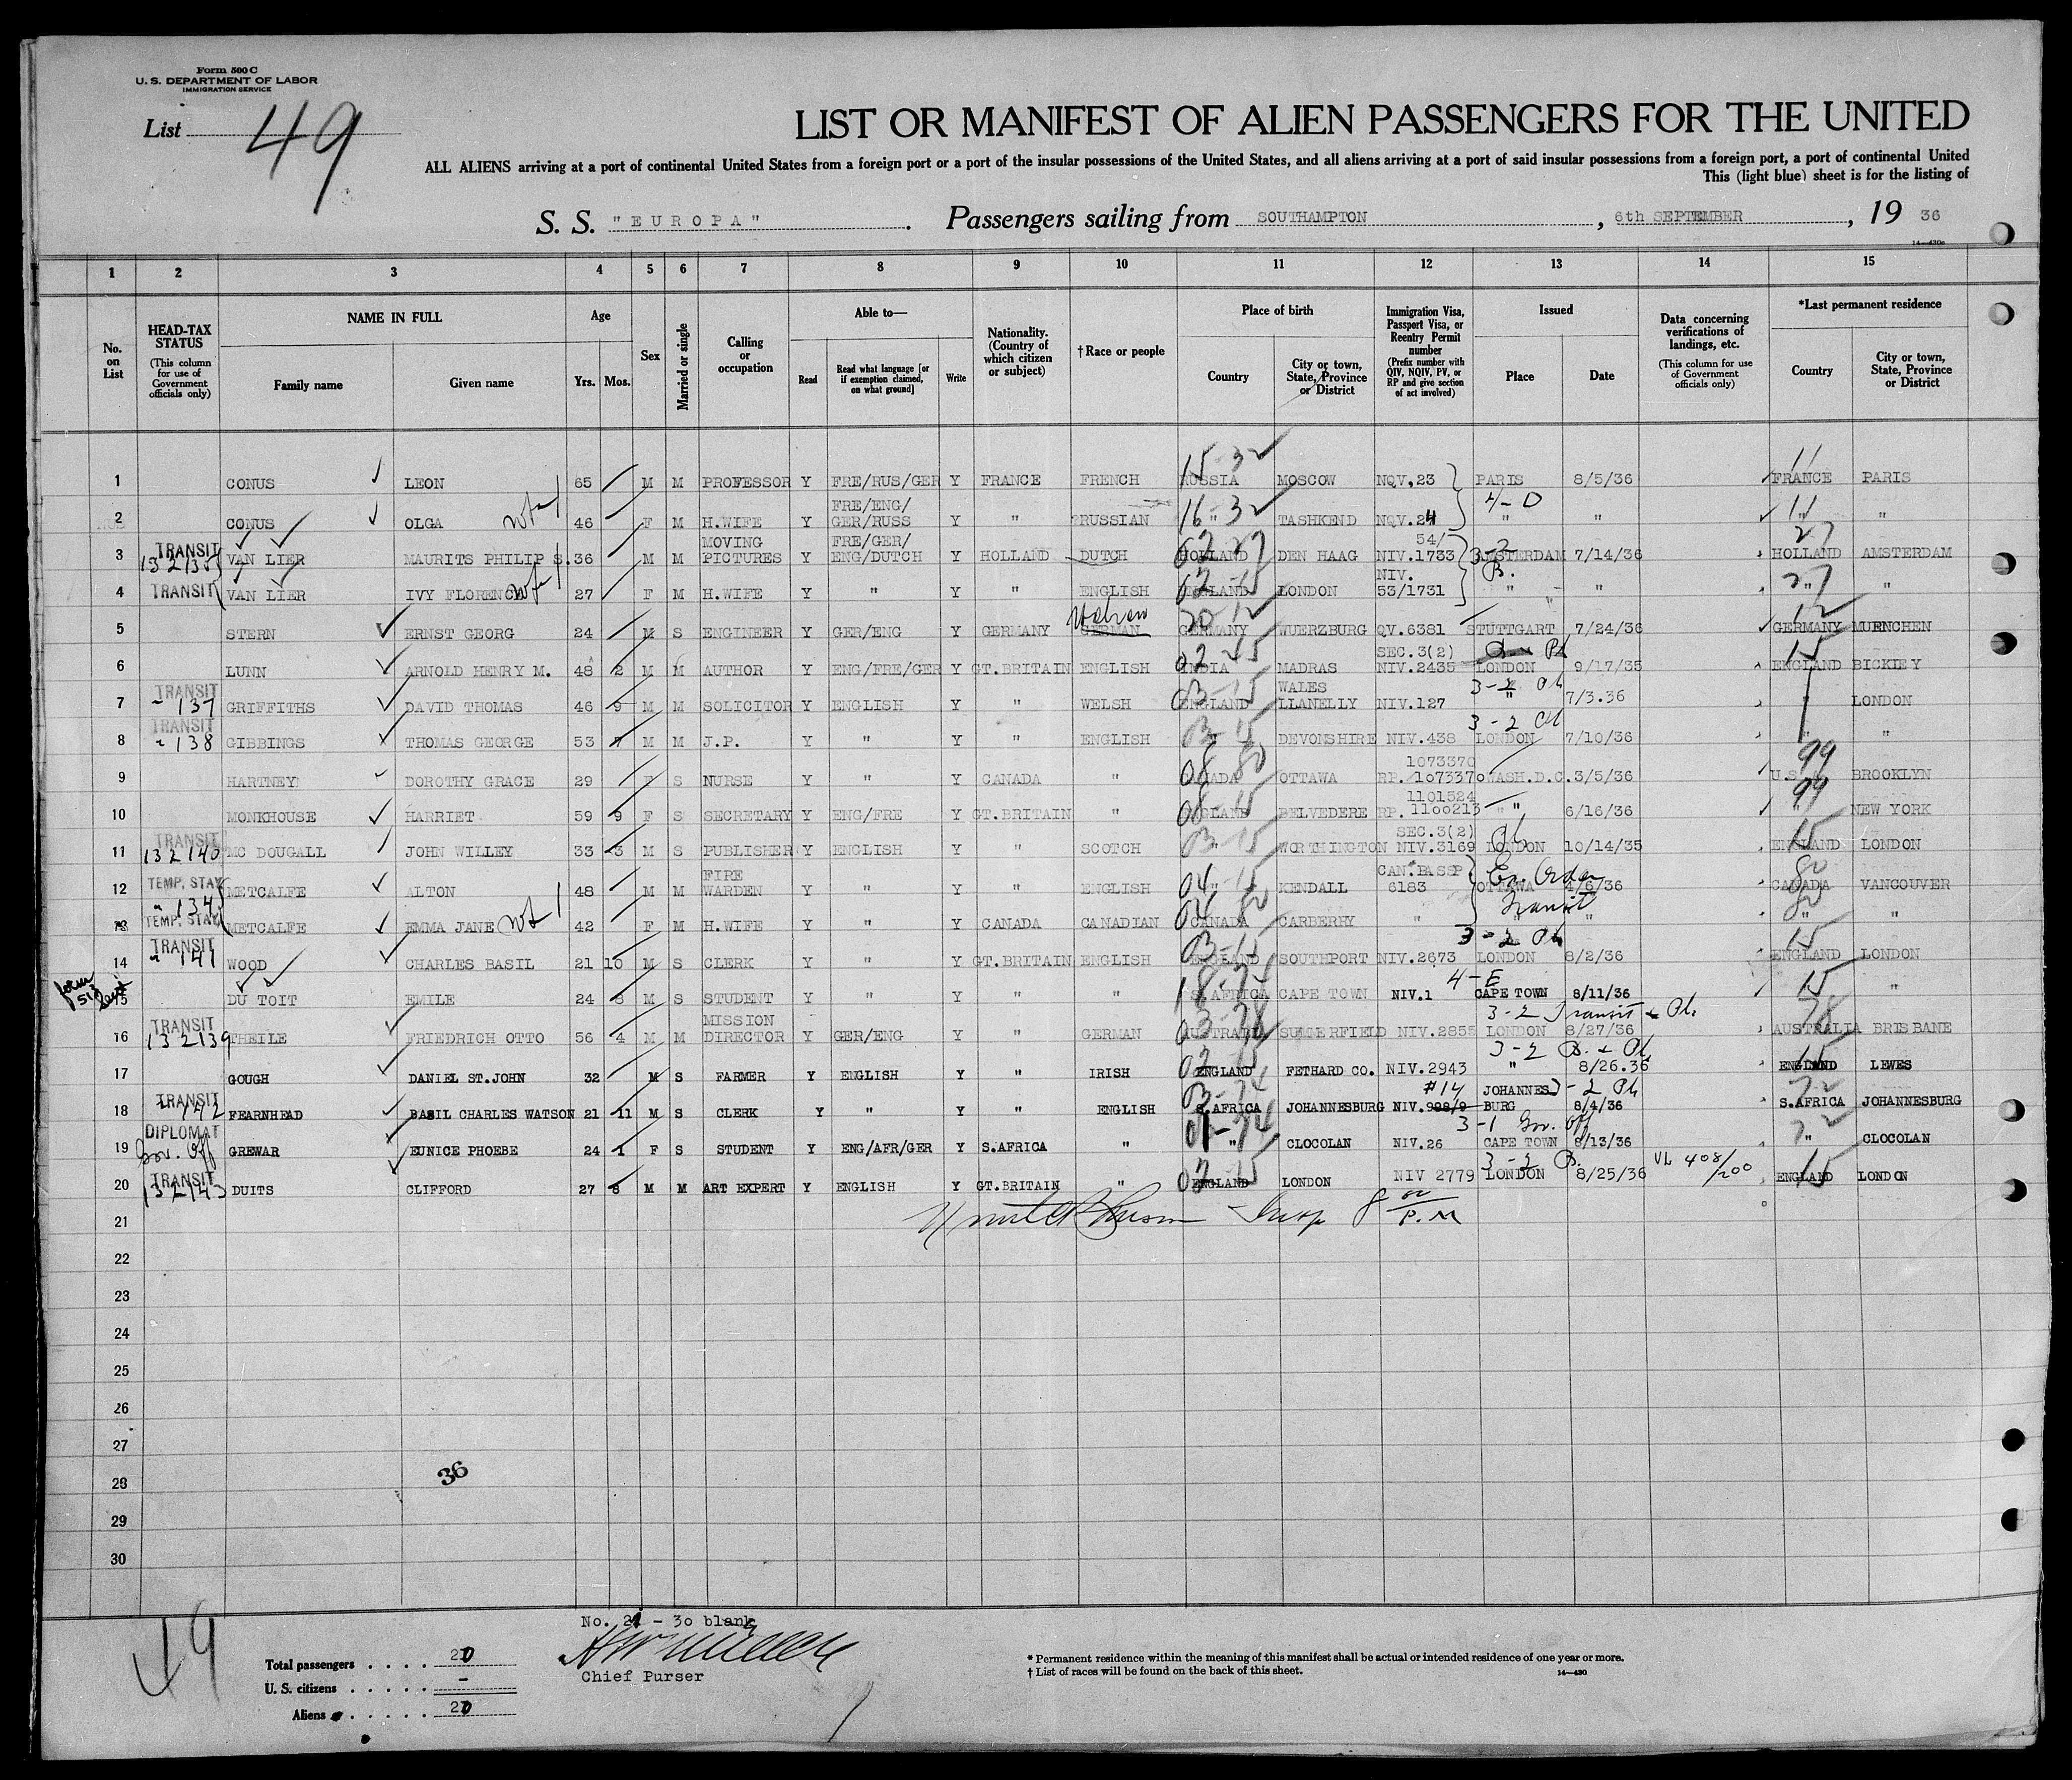 Form 500 C
U. S. DEPARTMENT OF LABOR
IMMIGRATION SERVICE
List 49
LIST OR MANIFEST OF ALIEN PASSENGERS FOR THE UNITED
ALL ALIENS arriving at a port of continental United States from a foreign port or a port of the insular possessions of the United States, and all aliens arriving at a port of said insular possessions from a foreign port, a port of continental United
This (light blue) sheet is for the listing of
S. S. "EUROPA". Passengers sailing from SOUTHAMPTON, 6th SEPTEMBER, 19 36
14—430c
1 2 3 4 5 6 7 8 9 10 11 12 13 14 15
No. on List
HEAD-TAX STATUS (This column for use of Government officials only)
NAME IN FULL Family name Given name
Age Yrs. Mos.
Sex
Married or single
Calling or occupation
Able to— Read Read what language [or if exemption claimed, on what ground] Write
Nationality. (Country of which citizen or subject)
†Race or people
Place of birth Country City or town, State, Province or District
Immigration Visa, Passport Visa, or Reentry Permit number (Prefix number with QIV, NQIV, PV, or RP and give section of act involved)
Issued Place Date
Data concerning verifications of landings, etc. (This column for use of Government officials only)
*Last permanent residence Country City or town, State, Province or District
15-32 11
1 CONUS LEON 65 M M PROFESSOR Y FRE/RUS/GER Y FRANCE FRENCH RUSSIA MOSCOW NQV.23 PARIS 8/5/36 FRANCE PARIS
4-D
2 CONUS OLGA wife 46 F M H.WIFE Y FRE/ENG/ GER/RUSS Y " RUSSIAN 16-32 " TASHKEND NQV.24 " " 11 " "
3 TRANSIT 132135 VAN LIER MAURITS PHILIP S. 36 M M MOVING PICTURES Y FRE/GER/ ENG/DUTCH Y HOLLAND DUTCH HOLLAND DEN HAAG 54/ NIV.1733 3-2 AMSTERDAM 7/14/36 27 HOLLAND AMSTERDAM
4 TRANSIT VAN LIER IVY FLORENCE wife 27 F M H.WIFE Y " Y " ENGLISH ENGLAND LONDON NIV. 53/1731 B. " " 27 " "
5 STERN ERNST GEORG 24 M S ENGINEER Y GER/ENG Y GERMANY Hebrew GERMAN GERMANY WUERZBURG QV.6381 STUTTGART 7/24/36 12 GERMANY MUENCHEN
6 LUNN ARNOLD HENRY M. 48 2 M M AUTHOR Y ENG/FRE/GER Y GT.BRITAIN ENGLISH 02-45 INDIA MADRAS SEC.3(2) NIV.2435 LONDON 9/17/35 15 ENGLAND BICKLEY
7 TRANSIT " 137 GRIFFITHS DAVID THOMAS 46 9 M M SOLICITOR Y ENGLISH Y " WELSH 03-15 ENGLAND WALES LLANELLY NIV.127 3-2 " 7/3.36 LONDON
8 TRANSIT " 138 GIBBINGS THOMAS GEORGE 53 7 M M J.P. Y " Y " ENGLISH 03-15 " DEVONSHIRE NIV.438 3-2 LONDON 7/10/36 " "
9 HARTNEY DOROTHY GRACE 29 F S NURSE Y " Y CANADA " 08 80 CANADA OTTAWA 1073370 RP. 1073370 WASH.D.C. 3/5/36 99 U.S. BROOKLYN
10 MONKHOUSE HARRIET 59 9 F S SECRETARY Y ENG/FRE Y GT.BRITAIN " 08-15 ENGLAND BELVEDERE 1101524 RP. 1100213 " 6/16/36 99 " NEW YORK
11 TRANSIT 132140 MC DOUGALL JOHN WILLEY 33 3 M S PUBLISHER Y ENGLISH Y " SCOTCH 03-15 " WORTHINGTON SEC.3(2) NIV.3169 LONDON 10/14/35 15 ENGLAND LONDON
12 TEMP. STAY " 134 METCALFE ALTON 48 M M FIRE WARDEN Y " Y " ENGLISH 04-15 " KENDALL CAN.PASSP 6183 OTTAWA Ex. Order 4/6/36 80 CANADA VANCOUVER
13 TEMP. STAY METCALFE EMMA JANE 42 F M H.WIFE Y " Y CANADA CANADIAN 04 80 CANADA CARBERRY " Transit " " 80 " "
14 TRANSIT " 141 WOOD CHARLES BASIL 21 10 M S CLERK Y " Y GT.BRITAIN ENGLISH 03-15 ENGLAND SOUTHPORT NIV.2673 3-2 LONDON 8/2/36 15 ENGLAND LONDON
form 513 Sent
15 DU TOIT EMILE 24 8 M S STUDENT Y " Y " " 18-74 S.AFRICA CAPE TOWN NIV.1 4-E CAPE TOWN 8/11/36 15 "
16 TRANSIT 132139 THEILE FRIEDRICH OTTO 56 4 M M MISSION DIRECTOR Y GER/ENG Y " GERMAN 03-78 AUSTRALIA SUMMERFIELD NIV.2855 3-2 Transit LONDON 8/27/36 78 AUSTRALIA BRISBANE
17 GOUGH DANIEL ST.JOHN 32 M S FARMER Y ENGLISH Y " IRISH ENGLAND FETHARD CO. NIV.2943 3-2 B. " 8/26.36 15 ENGLAND LEWES
18 TRANSIT " 142 FEARNHEAD BASIL CHARLES WATSON 21 11 M S CLERK Y " Y " ENGLISH 03-74 S.AFRICA JOHANNESBURG #14 NIV.988/9 JOHANNES BURG 3-2 8/4/36 S.AFRICA JOHANNESBURG
19 DIPLOMAT Gov. Off GREWAR EUNICE PHOEBE 24 1 F S STUDENT Y ENG/AFR/GER Y S.AFRICA " 01-74 " CLOCOLAN NIV.26 3-1 Gov. Off CAPE TOWN 8/13/36 " CLOCOLAN
20 TRANSIT 132143 DUITS CLIFFORD 27 8 M M ART EXPERT Y ENGLISH Y GT.BRITAIN " 02-15 ENGLAND LONDON NIV 2779 3-2 B. LONDON 8/25/36 VL 408/200 15 ENGLAND LONDON
21 Insp 8 00 P.M
22
23
24
25
26
27
28 36
29
30
49
No. 21 - 30 blank
Total passengers . . . . 20
U. S. citizens . . . . . -
Aliens . . . . . . 20
Chief Purser
* Permanent residence within the meaning of this manifest shall be actual or intended residence of one year or more.
† List of races will be found on the back of this sheet.
14—430